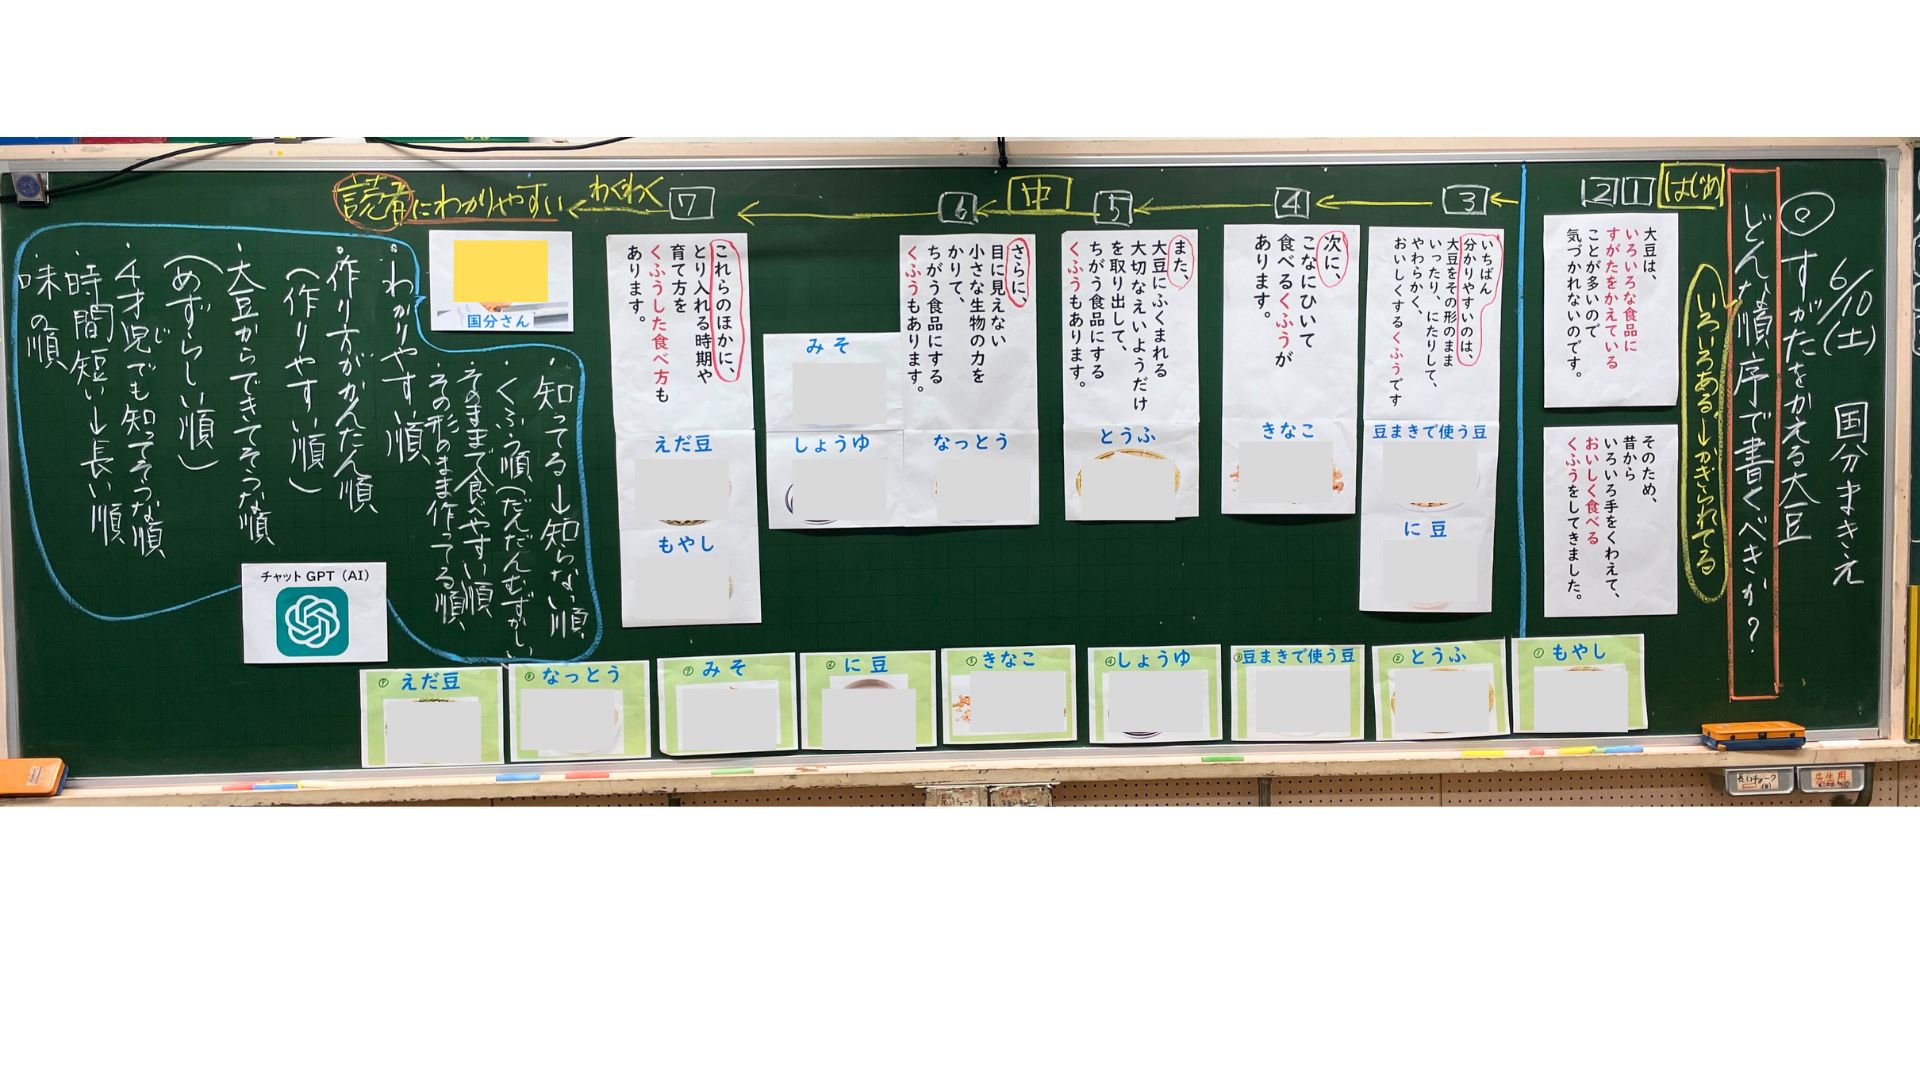 6/10(土)
◎すがたをかえる大豆 国分まきえ
どんな順序で書くべきか?
いろいろある→かぎられてる
はじめ
1
2
大豆は、
いろいろな食品に
すがたをかえている
ことが多いので
気づかれないのです。
そのため、
昔から
いろいろ手をくわえて、
おいしく食べる
くふうをしてきました。
中
3
いちばん
分かりやすいのは、
大豆をその形のまま
いったり、にたりして、
やわらかく、
おいしくするくふうです
豆まきで使う豆
に豆
4
次に、
こなにひいて
食べるくふうが
あります。
きなこ
5
また、
大豆にふくまれる
大切なえいようだけ
を取り出して、
ちがう食品にする
くふうもあります。
とうふ
6
さらに、
目に見えない
小さな生物の力を
かりて、
ちがう食品にする
くふうもあります。
なっとう
みそ
しょうゆ
7
これらのほかに、
とり入れる時期や
育て方を
くふうした食べ方も
あります。
えだ豆
もやし
わくわく
読者にわかりやすい
国分さん
・知ってる→知らない順
・くふう順(だんだんむずかしい
・そのままで食べやすい順
・その形のまま作ってる順
・わかりやすい順
・作り方がかんたん順
(作りやすい順)
・大豆からできてそうな順
(めずらしい順)
・4才児でも知ってそうな順
・時間短い→長い順
・味の順
チャットGPT(AI)
①もやし
②とうふ
③豆まきで使う豆
④しょうゆ
⑤きなこ
⑥に豆
⑦みそ
⑧なっとう
⑨えだ豆
長いチョーク
先生用